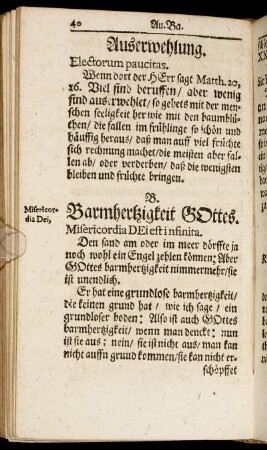 40 Au. Ba.
Auserwehlung.
Electorum paucitas.
Wenn dort der HErr sagt Matth. 20,
16. Viel sind beruffen / aber wenig
sind auserwehlet / so gehets mit der men-
schen seeligkeit her wie mit den baumblü-
then / die fallen im frühlinge so schön und
häuffig heraus / daß man auff viel früchte
sich rechnung machet / die meisten aber fal-
len ab / oder verderben / daß die wenigsten
bleiben und früchte bringen.
B.
Barmhertzigkeit GOttes.
Misericor-
dia Dei,
Misericordia DEi est infinita.
Den sand am oder im meer dörffte ja
noch wohl ein Engel zehlen können: Aber
GOttes barmhertzigkeit nimmermehr / sie
ist unendlich.
Er hat eine grundlose barmhertzigkeit /
die keinen grund hat / wie ich sage / ein
grundloser boden: Also ist auch GOttes
barmhertzigkeit / wenn man denckt: nun
ist sie aus: nein / sie ist nicht aus / man kan
nicht auffn grund kommen / sie kan nicht er-
schöpffet